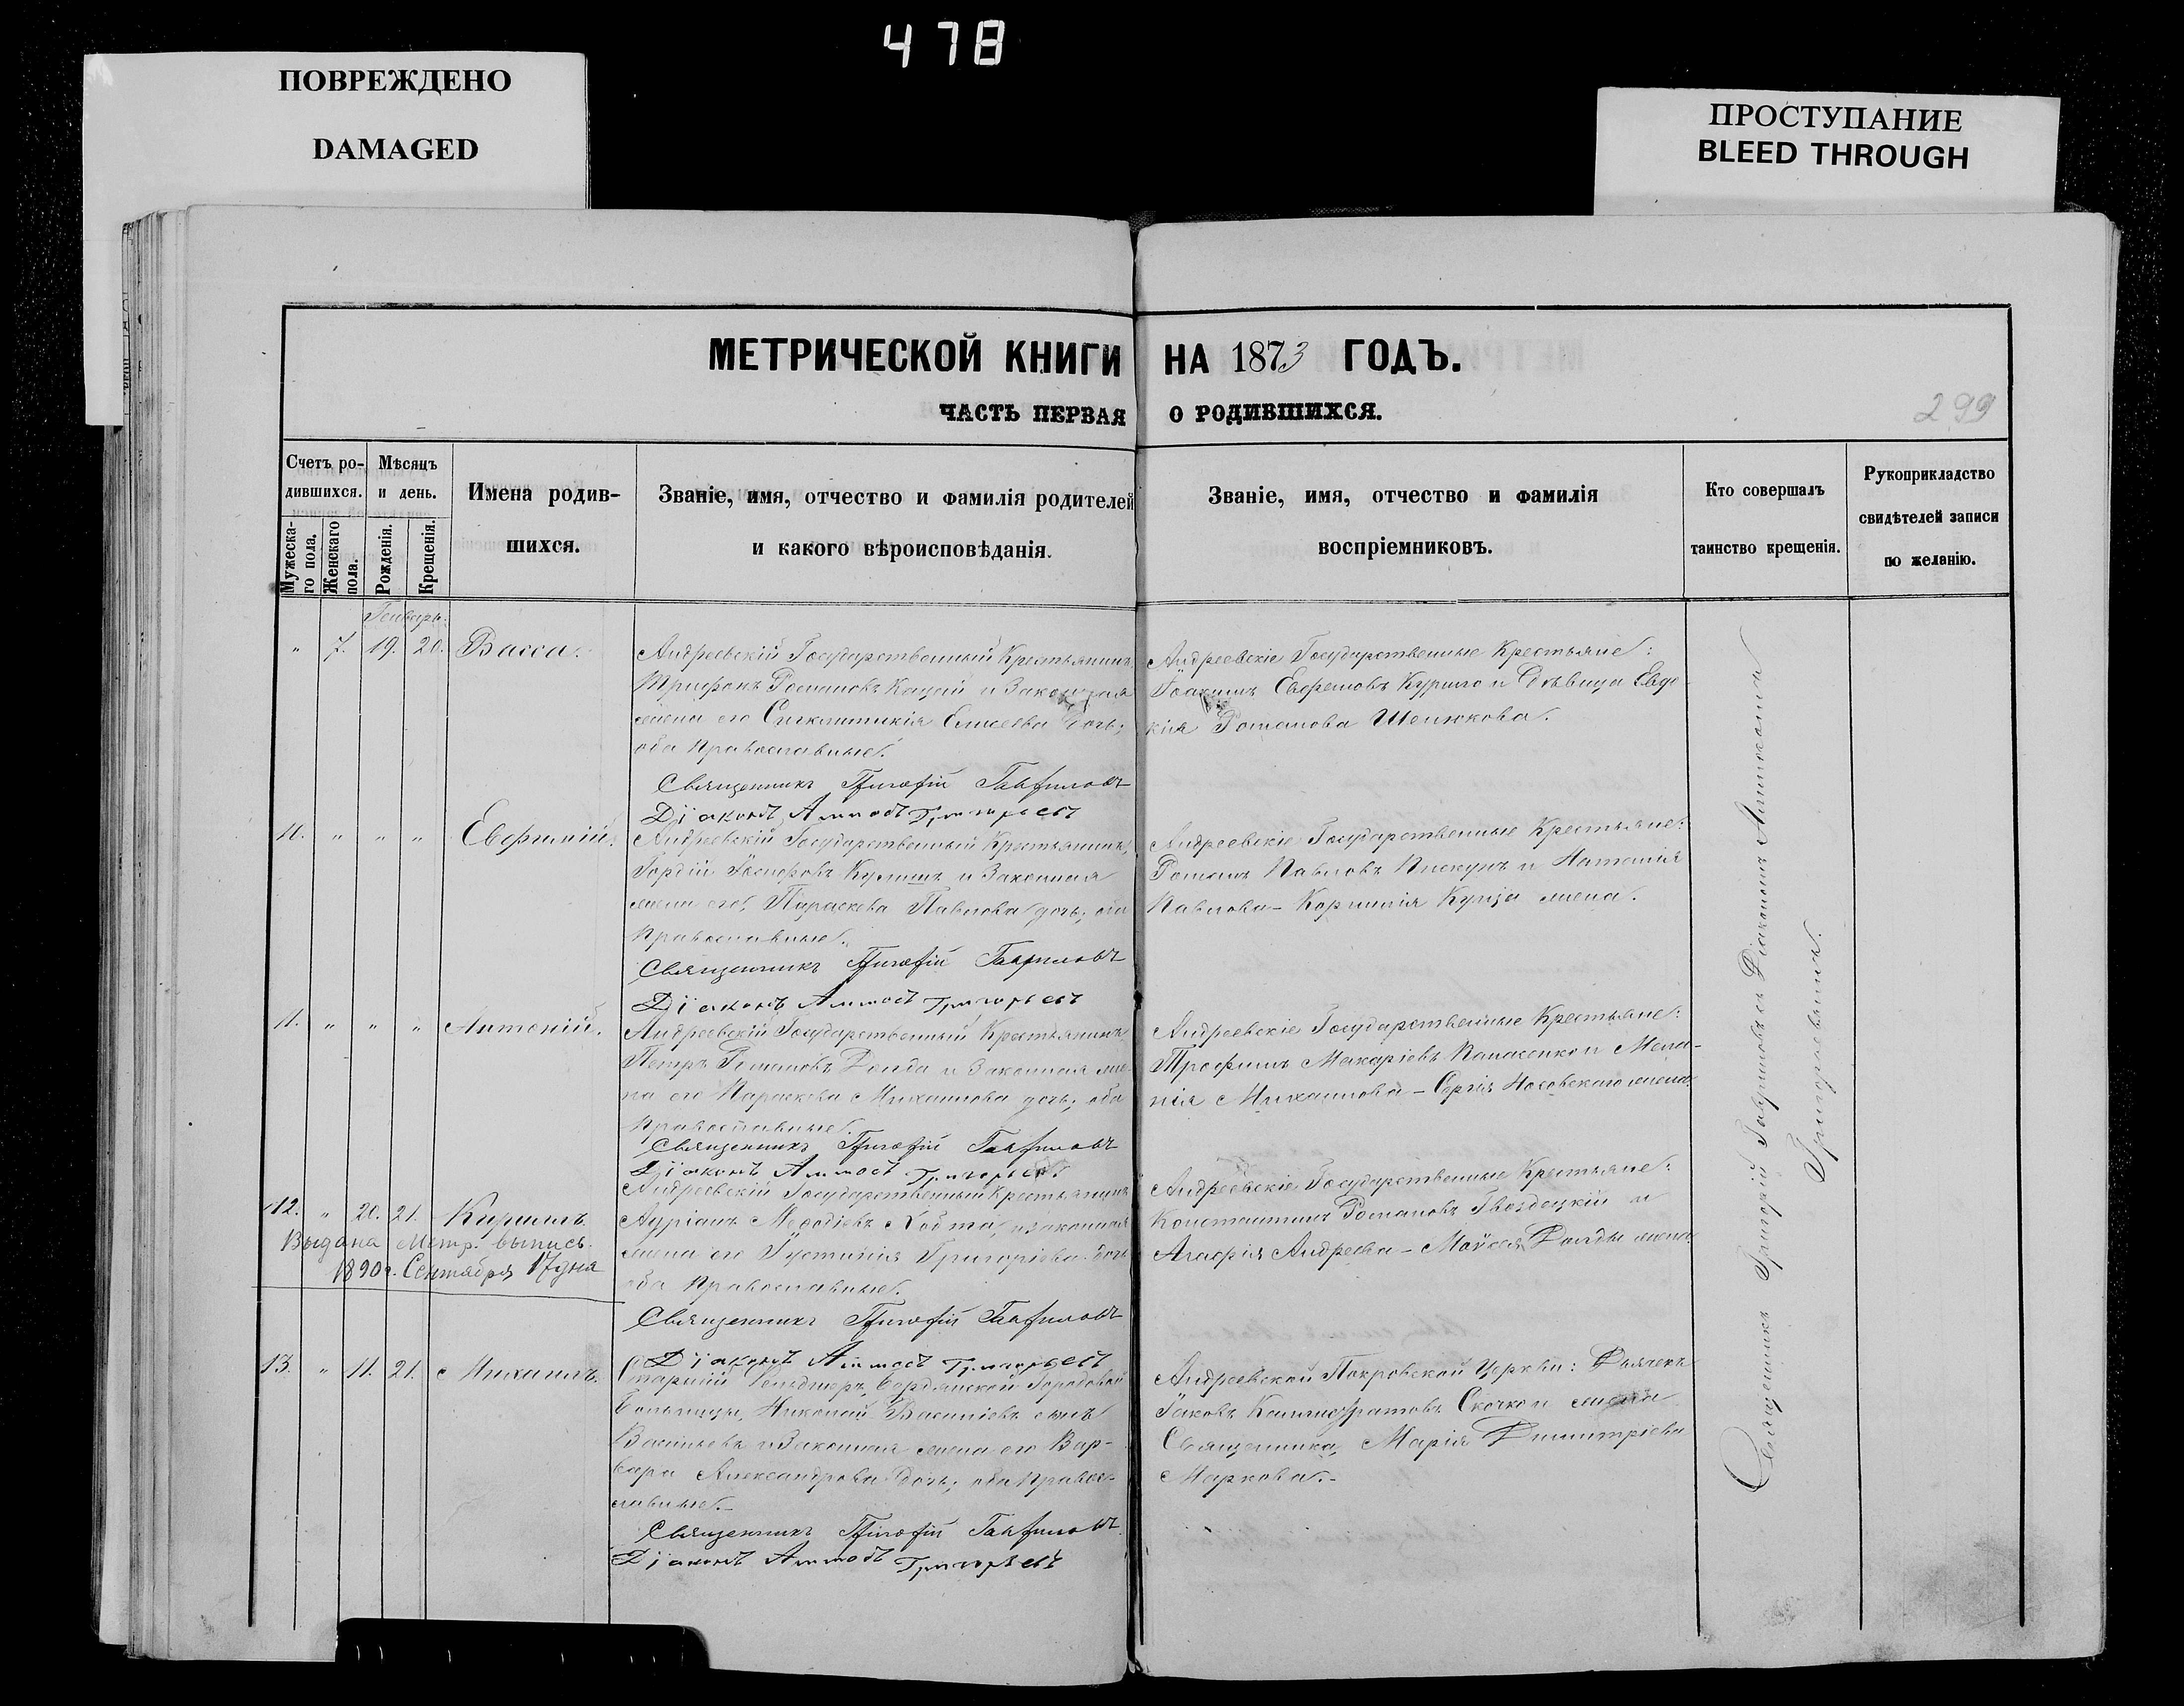 478
ПОВРЕЖДЕНО
DAMAGED
ПРОСТУПАНИЕ
BLEED THROUGH
МЕТРИЧЕСКОЙ КНИГИ НА 1873 ГОДЪ.
ЧАСТЬ ПЕРВАЯ О РОДИВШИХСЯ.
299
Счетъ ро-
дившихся.
Мужеска-
го пола.
Женскаго
пола.
Мѣсяцъ
и день.
Рожденія.
Крещенія.
Имена родив-
шихся.
Званіе, имя, отчество и фамилія родителей
и какого вѣроисповѣданія.
Званіе, имя, отчество и фамилія
воспріемниковъ.
Кто совершалъ
таинство крещенія.
Рукоприкладство
свидѣтелей записи
по желанію.
Генварь.
" 7. 19. 20. Васса.
Андреевскій Государственный Крестьянинъ
Трифонъ Романовъ Кацай и Законная
жена его Сигклитикія Елисеева дочь;
оба Православные.
Священникъ Григорій Гавриловъ
Діаконъ Аммосъ Григорьевъ
Андреевскіе Государственные Крестьяне:
Іоакимъ Евфемовъ Куришо и Дѣвица Евдо-
кія Романова Шелюкова.
" " " Евфимій.
Андреевскій Государственный Крестьянинъ,
Гордій Іосифовъ и Законная
жена его, Параскева Павлова дочь; оба
Православные.
Священникъ Григорій Гавриловъ
Діаконъ Аммосъ Григорьевъ
Андреевскіе Государственные Крестьяне:
Романъ Павловъ Пискунъ и
Павлова - Корнилія жена.
11. " " " Антоній.
Андреевскій Государственный Крестьянинъ
Петръ Романовъ Долда и Законная же-
на его Параскева Михаилова дочь; оба
Православные.
Священникъ Григорій Гавриловъ
Діаконъ Аммосъ Григорьевъ
Андреевскіе Государственные Крестьяне:
Трофимъ Макаріевъ Панасенко и Мела-
нія Михаилова - Сергія Носовскаго жена.
12. " 20. 21. Кириллъ.
Выдана Метр. выпись.
1890 г. Сентября 17 дня
Андреевскій Государственный Крестьянинъ
Адріанъ Меѳодіевъ Ховта, и законная
жена его Іустинія Григоріева дочь
оба Православные.
Священникъ Григорій Гавриловъ
Діаконъ Аммосъ Григорьевъ
Андреевскіе Государственные Крестьяне:
Константинъ Романовъ Гвоздецкій и
Агафія Андреева - Моисея Долды жена
13. " 11. 21. Михаилъ.
Старшій Фельдшеръ, Бердянской Городовой
Больницы, Николай Василіевъ сынъ
Васильевъ и Законная жена его Вар-
вара Александрова дочь; оба Правос-
лавные.
Священникъ Григорій Гавриловъ
Діаконъ Аммосъ Григорьевъ
Андреевской Покровской Церкви: Дьячекъ
Іаковъ Каллистратовъ Скочко и жена
Священника, Марія Димитріева
Маркова.
Священникъ Григорій Гавриловъ съ Діакономъ Аммосомъ
Григорьевымъ.